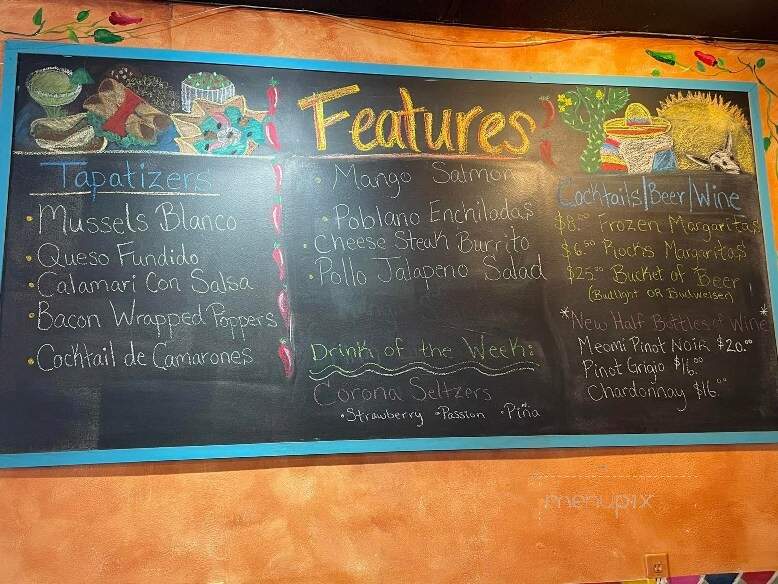 Tapatizers
• Mussels Blanco
• Queso Fundido
• Calamari Con Salsa
• Bacon Wrapped Poppers
• Cocktail de Camarones
Features
• Mango Salmon
• Poblano Enchiladas
• Cheese Steak Burrito
• Pollo Jalapeno Salad
Drink of the Week:
Corona Seltzers
• Strawberry • Passion • Piña
Cocktails/Beer/Wine
$8.00 Frozen Margaritas
$6.50 Rocks Margaritas
$25.00 Bucket of Beer
(Budlight OR Budweiser)
*New Half Bottles of Wine*
Meomi Pinot Noir $20.00
Pinot Grigio $16.00
Chardonnay $16.00
menupix